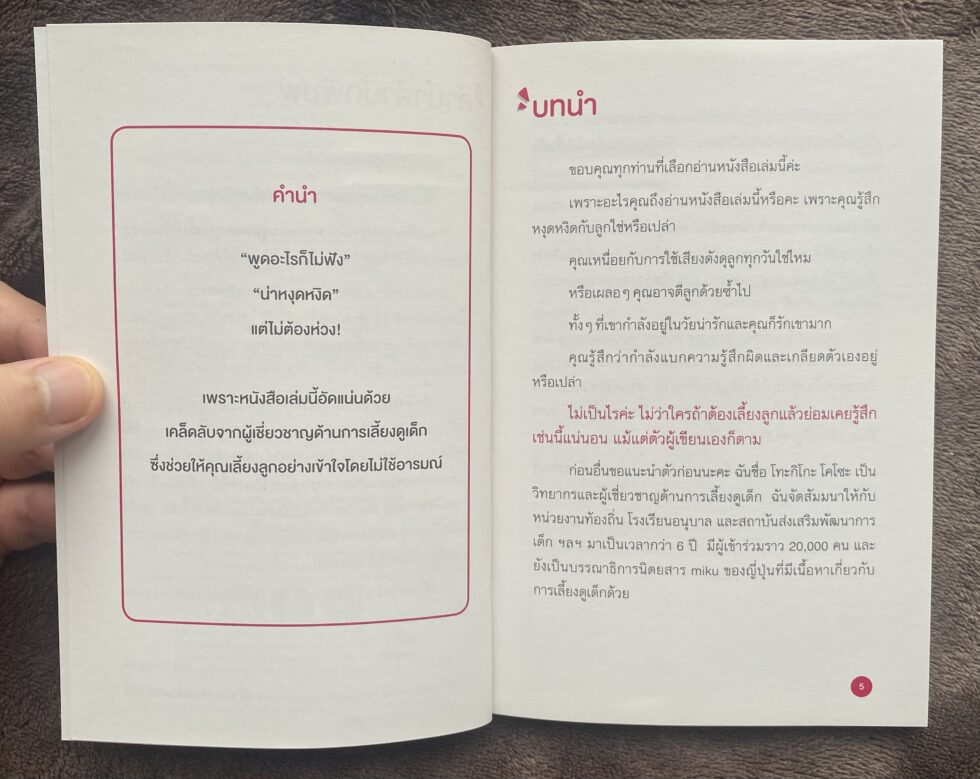 คำนำ
“พูดอะไรก็ไม่ฟัง”
“น่าหงุดหงิด”
แต่ไม่ต้องห่วง!
เพราะหนังสือเล่มนี้อัดแน่นด้วย
เคล็ดลับจากผู้เชี่ยวชาญด้านการเลี้ยงดูเด็ก
ซึ่งช่วยให้คุณเลี้ยงลูกอย่างเข้าใจโดยไม่ใช้อารมณ์
บทนำ
ขอบคุณทุกท่านที่เลือกอ่านหนังสือเล่มนี้ค่ะ
เพราะอะไรคุณถึงอ่านหนังสือเล่มนี้หรือคะ เพราะคุณรู้สึก
หงุดหงิดกับลูกใช่หรือเปล่า
คุณเหนื่อยกับการใช้เสียงดังดุลูกทุกวันใช่ไหม
หรือเผลอๆ คุณอาจตีลูกด้วยซ้ำไป
ทั้งๆ ที่เขากำลังอยู่ในวัยน่ารักและคุณก็รักเขามาก
คุณรู้สึกว่ากำลังแบกความรู้สึกผิดและเกลียดตัวเองอยู่
หรือเปล่า
ไม่เป็นไรค่ะ ไม่ว่าใครถ้าต้องเลี้ยงลูกแล้วย่อมเคยรู้สึก
เช่นนี้แน่นอน แม้แต่ตัวผู้เขียนเองก็ตาม
ก่อนอื่นขอแนะนำตัวก่อนนะคะ ฉันชื่อ โทะกิโกะ โคโซะ เป็น
วิทยากรและผู้เชี่ยวชาญด้านการเลี้ยงดูเด็ก ฉันจัดสัมมนาให้กับ
หน่วยงานท้องถิ่น โรงเรียนอนุบาล และสถาบันส่งเสริมพัฒนาการ
เด็ก ฯลฯ มาเป็นเวลากว่า 6 ปี มีผู้เข้าร่วมราว 20,000 คน และ
ยังเป็นบรรณาธิการนิตยสาร miku ของญี่ปุ่นที่มีเนื้อหาเกี่ยวกับ
การเลี้ยงดูเด็กด้วย
5